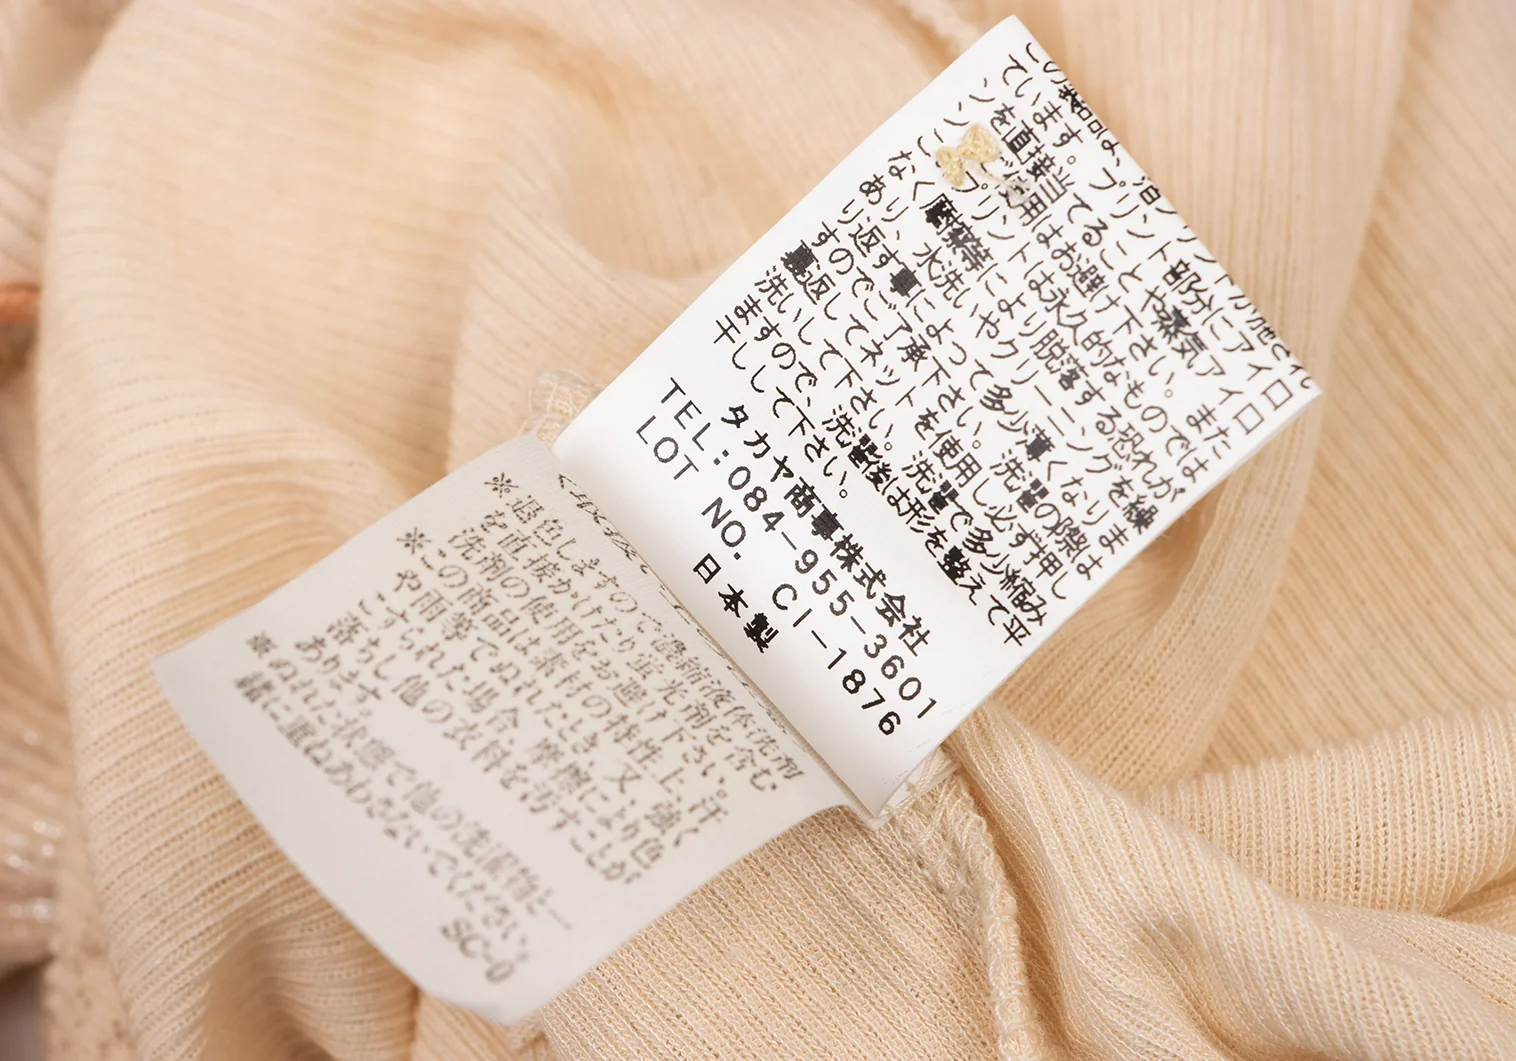 この商品は、プリント部分にアイロ
ています。
ンを直接当てることや蒸気アイロ
ンのご使用はお避け下さい。また
プリントは永久的なものでは
なく摩擦等により脱落する恐れが
あり、水洗いやクリーニングを繰
り返す事によって多少薄くなりま
すのでご了承下さい。洗濯の際は
裏返してネットを使用し必ず押し
洗いして下さい。洗濯で多少縮み
ますので、洗濯後は形を整えて平
干しして下さい。
タカヤ商事株式会社
TEL:084-955-3601
LOT NO. CI-1876
日本製
※退色しますので濃縮液体洗剤
を直接かけたり蛍光剤を含む
洗剤の使用をお避け下さい。
※この商品は素材の特性上、汗
や雨等でぬれたとき、又、強く
こすられた場合、摩擦により色
落ちし他の衣料を汚すことが
あります。
※ぬれた状態で他の洗濯物と一
緒に重ねあわさないでください。
SC-0